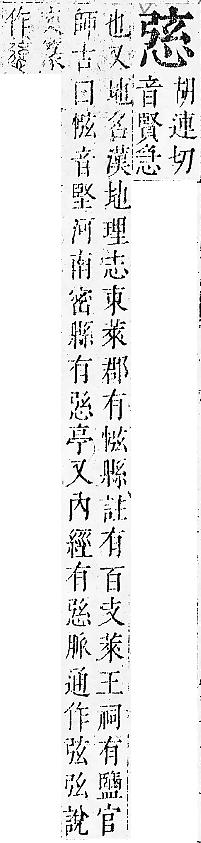 胡連切
音賢急
也又地名漢地理志東萊郡有縣註有百支萊王祠有鹽官
師古曰音堅河南密縣有亭又內經有脈通作弦弦說
文篆
作